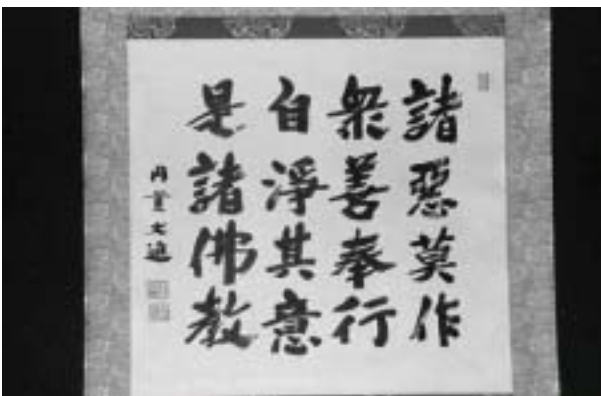 諸惡莫作
衆善奉行
自淨其意
是諸佛教